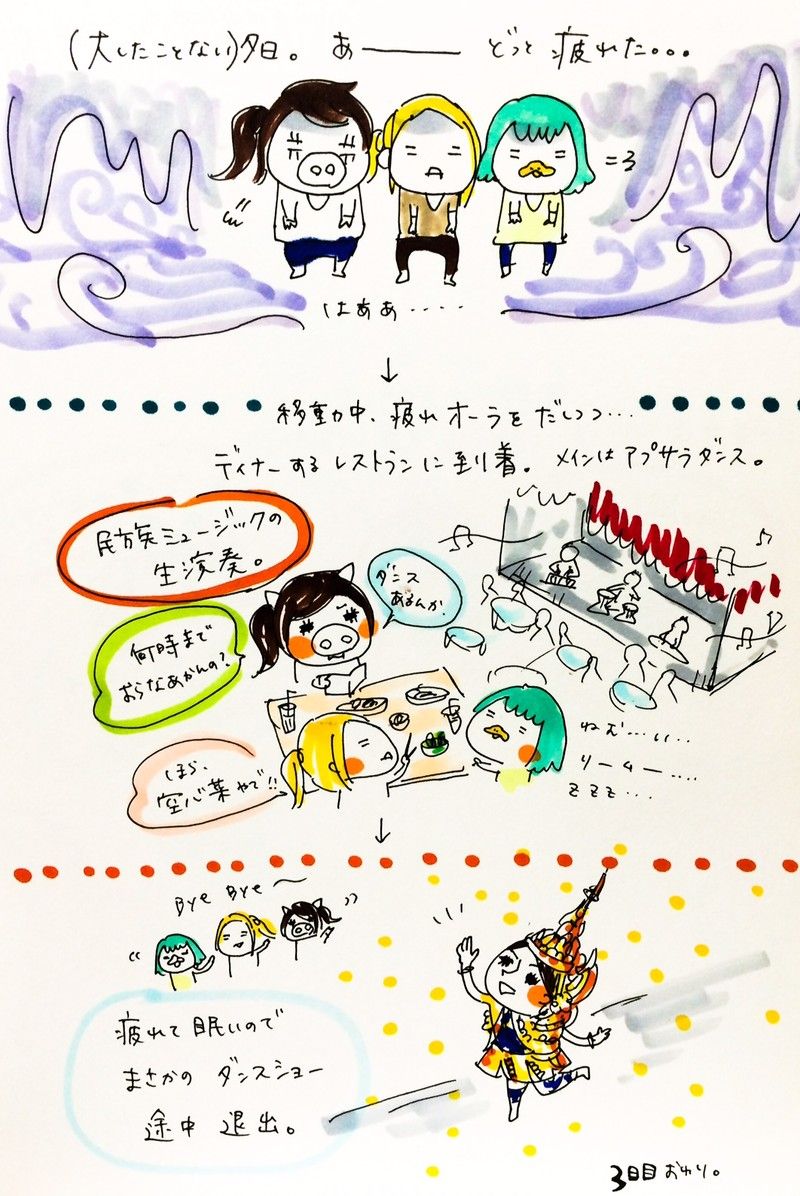 (大したことない)夕日。 あ―――― どっと 疲れた。。。
はぁぁ‥‥‥
↓
移動中、疲れオーラをだしつつ…
ディナーするレストランに到着。 メインはアプサラダンス。
民族ミュージックの
生演奏。
ダンス
あるんか
何時まで
おらなあかんの?
ほら、
空心菜やで!!
ねむ…い…
りームー….
zzz…
↓
BYE BYE〜
疲れて眠いので
まさかの ダンスショー
途中 退出。
3日目 おわり。